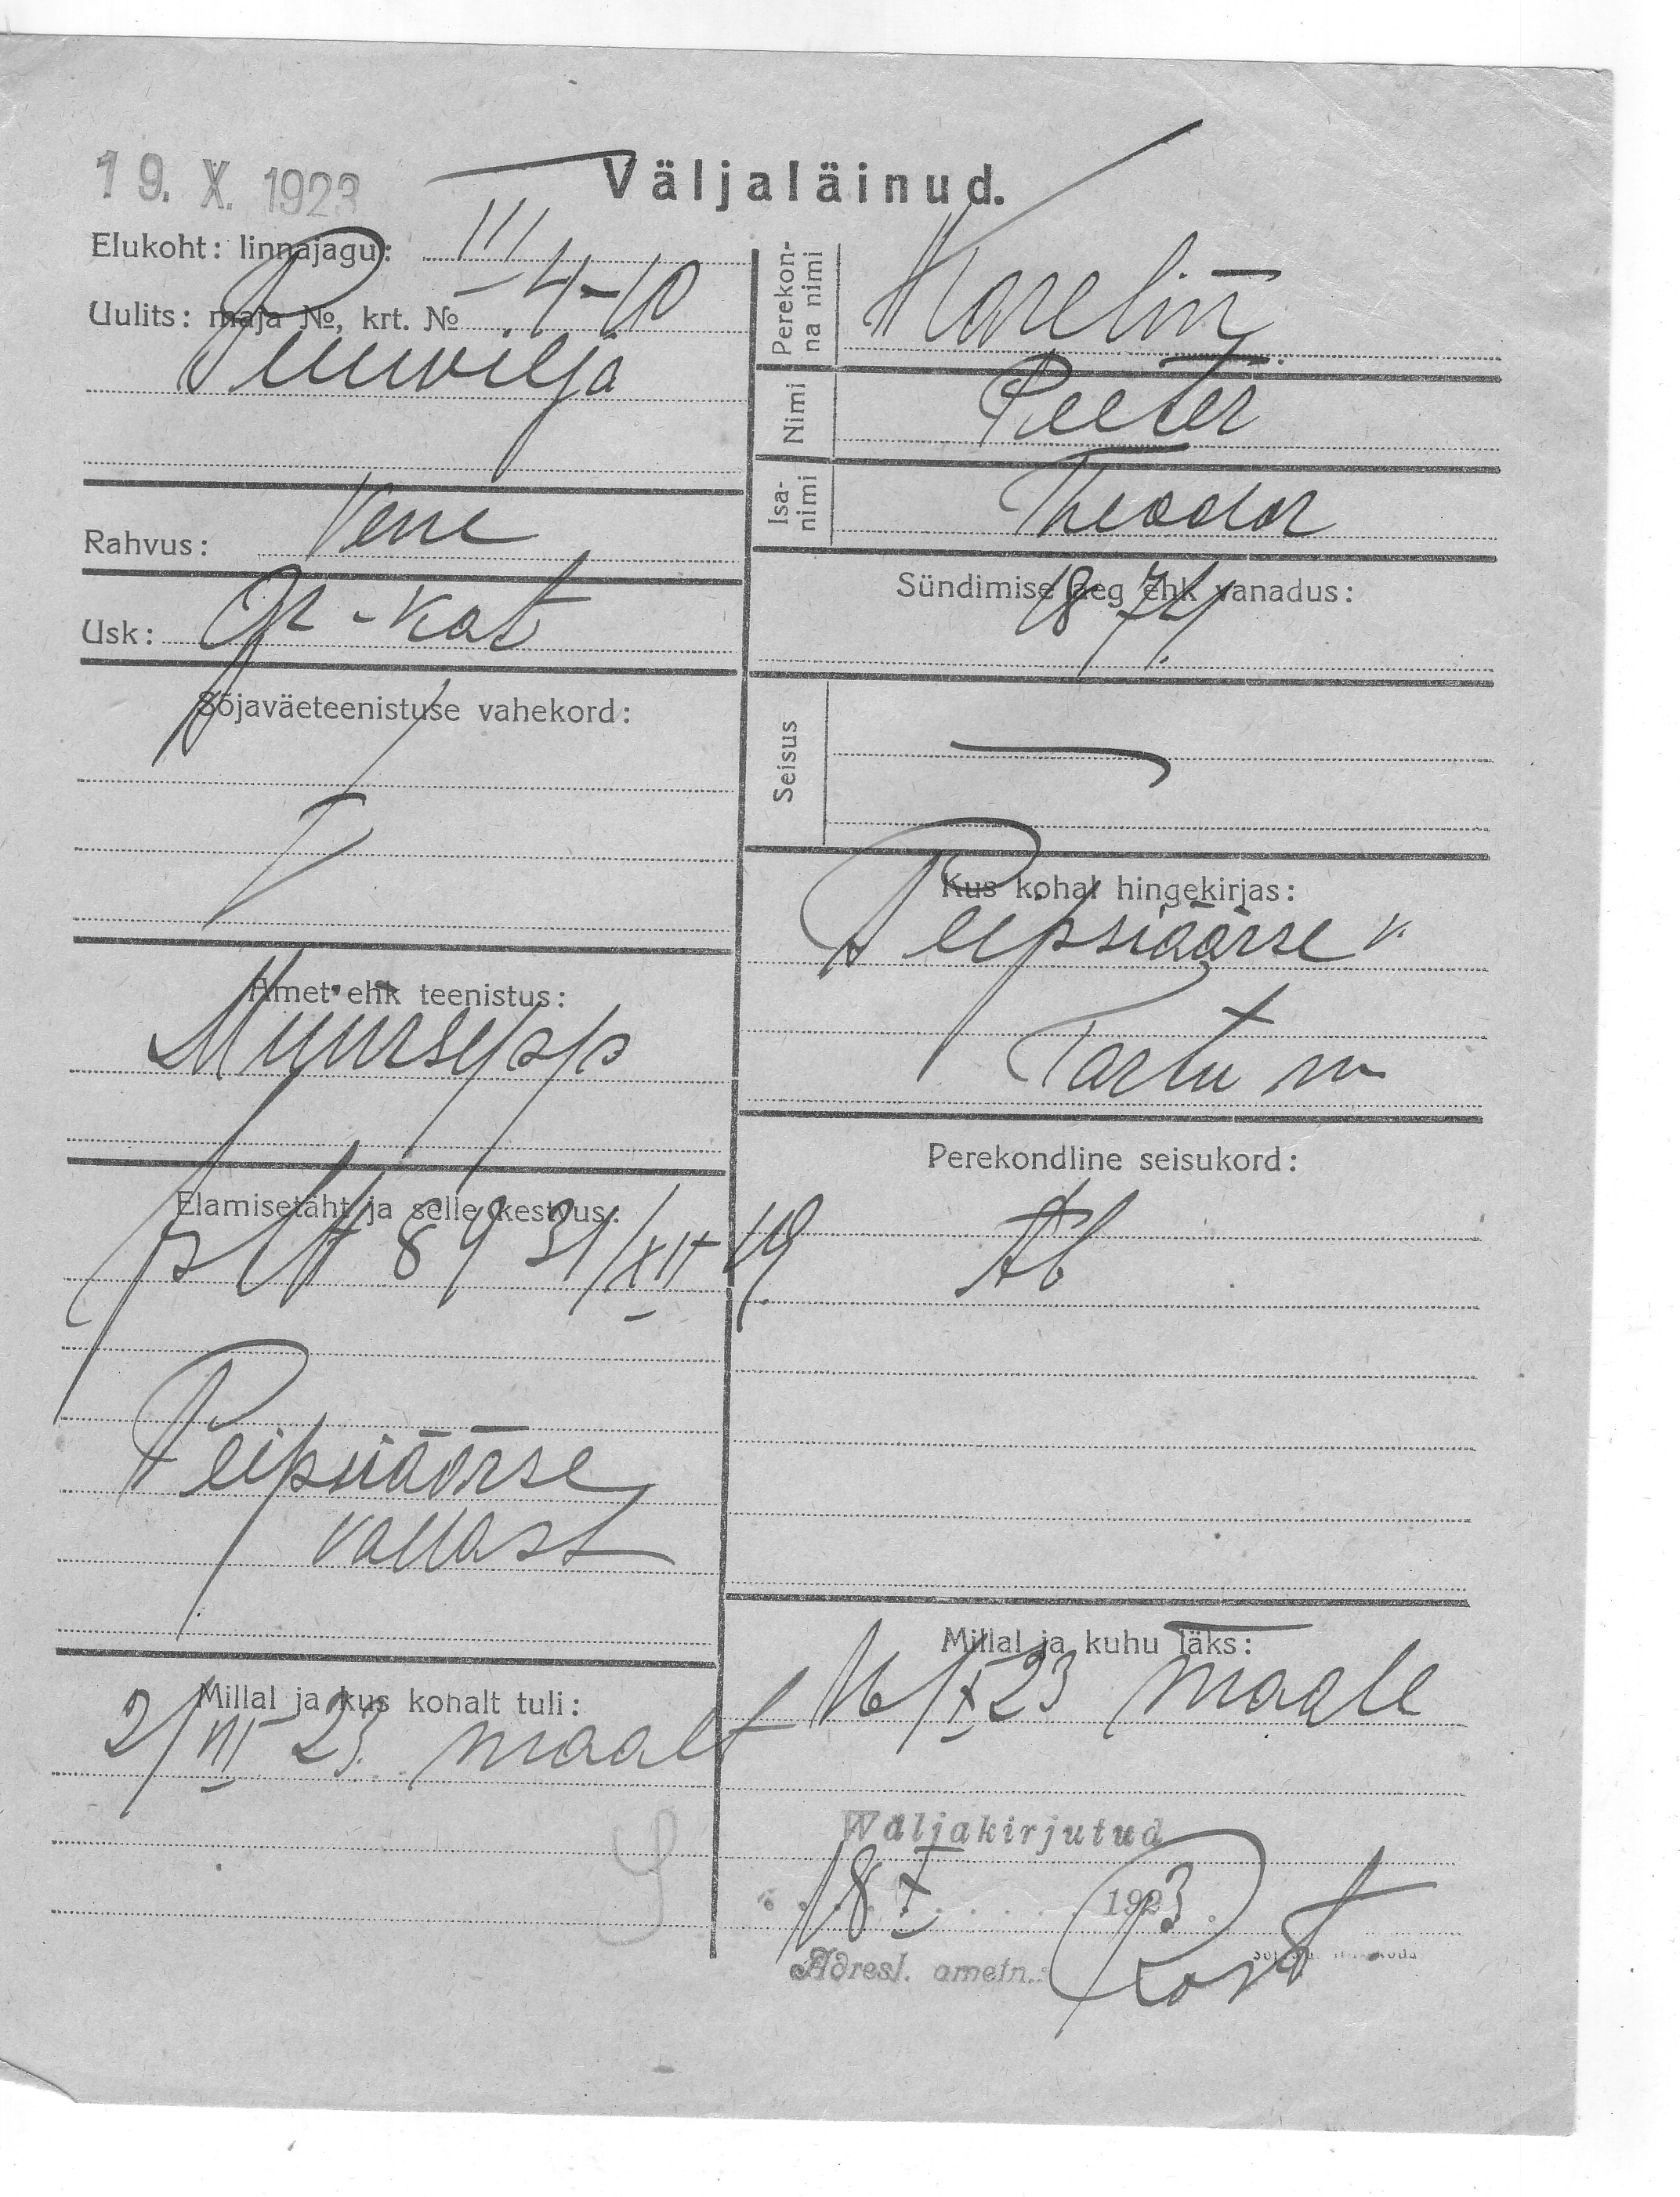 19. X. 1923
Väljaläinud.
Elukoht: linnajagu: III
Uulits: maja №, krt. № 4-10
Puuvilja
Rahvus: Vene
Usk: Gr-kat
Sõjaväeteenistuse vahekord:
Amet ehk teenistus:
Müürsepp
Elamisetäht ja selle kestvus:
89 31/XII 19
Peipsiäärse
vallast
Millal ja kus kohalt tuli:
2/VII 23. maalt
Perekonna nimi Karelin
Nimi Peeter
Isanimi Theodor
Sündimise aeg ehk vanadus:
1874.
Seisus
Kus kohal hingekirjas:
Peipsiäärse v.
Tartu m
Perekondline seisukord:
Ab
Millal ja kuhu läks:
16/X 23 maale
Wäljakirjutud
18 X 1923.
Adresl. ametn.: